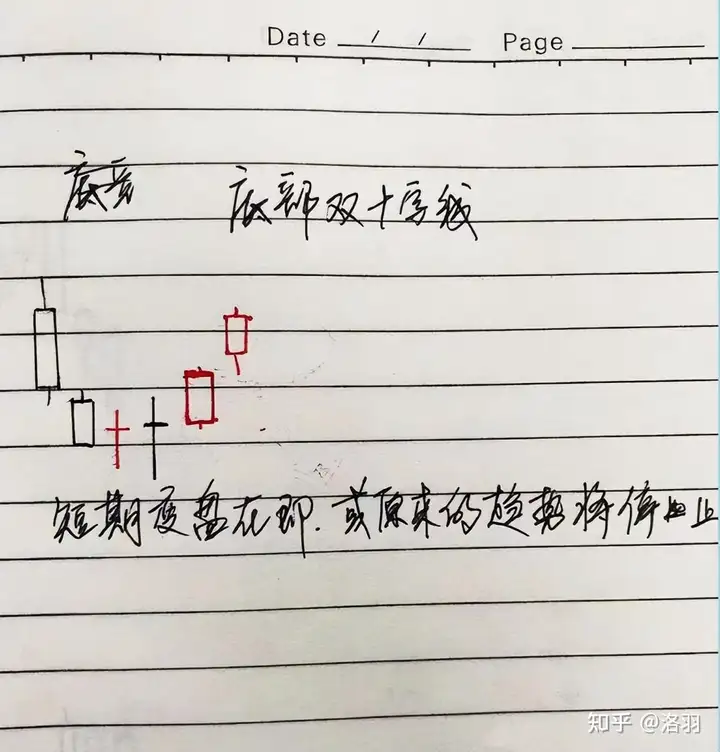 Date / / Page
底部双十字线
短期变盘在即.或原来的趋势将停止
知乎 @洛羽